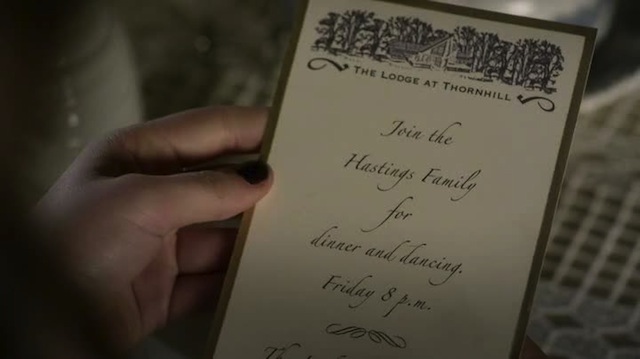 THE LODGE AT THORNHILL
Join the
Hastings Family
for
dinner and dancing.
Friday 8 p.m.